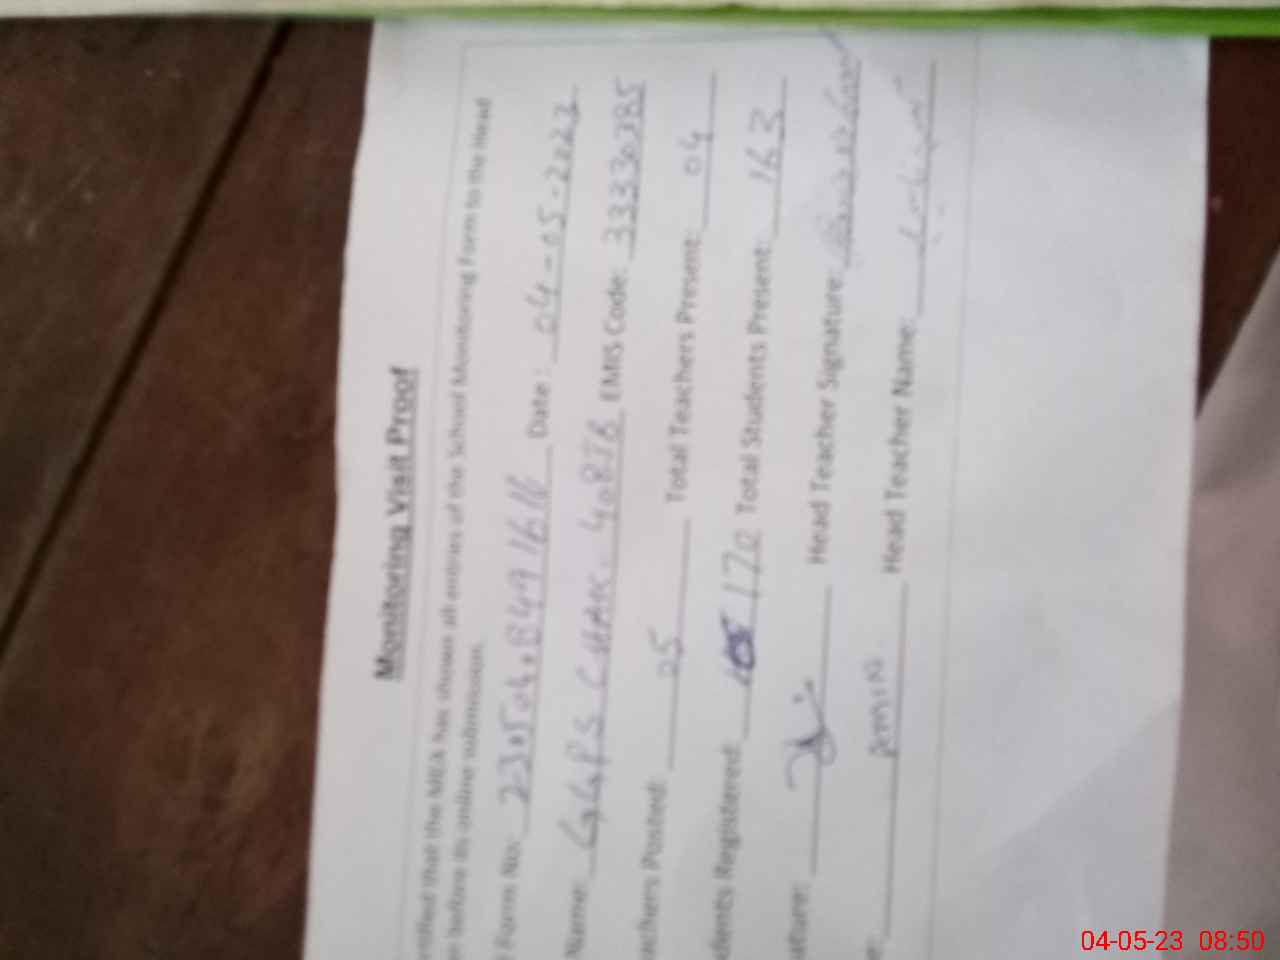 Monitoring Visit Proof
ertified that the MEA has shown all entries of the School Monitoring Form to the Head
before its online submission.
Form No: Date: 04-05-2023
Name: GGPS CHAK. 408JB EMIS Code: 33330385
achers Posted: 05 Total Teachers Present: 04
dents Registered: 170 Total Students Present: 163
ature: Head Teacher Signature:
e: Amin Head Teacher Name:
04-05-23 08:50